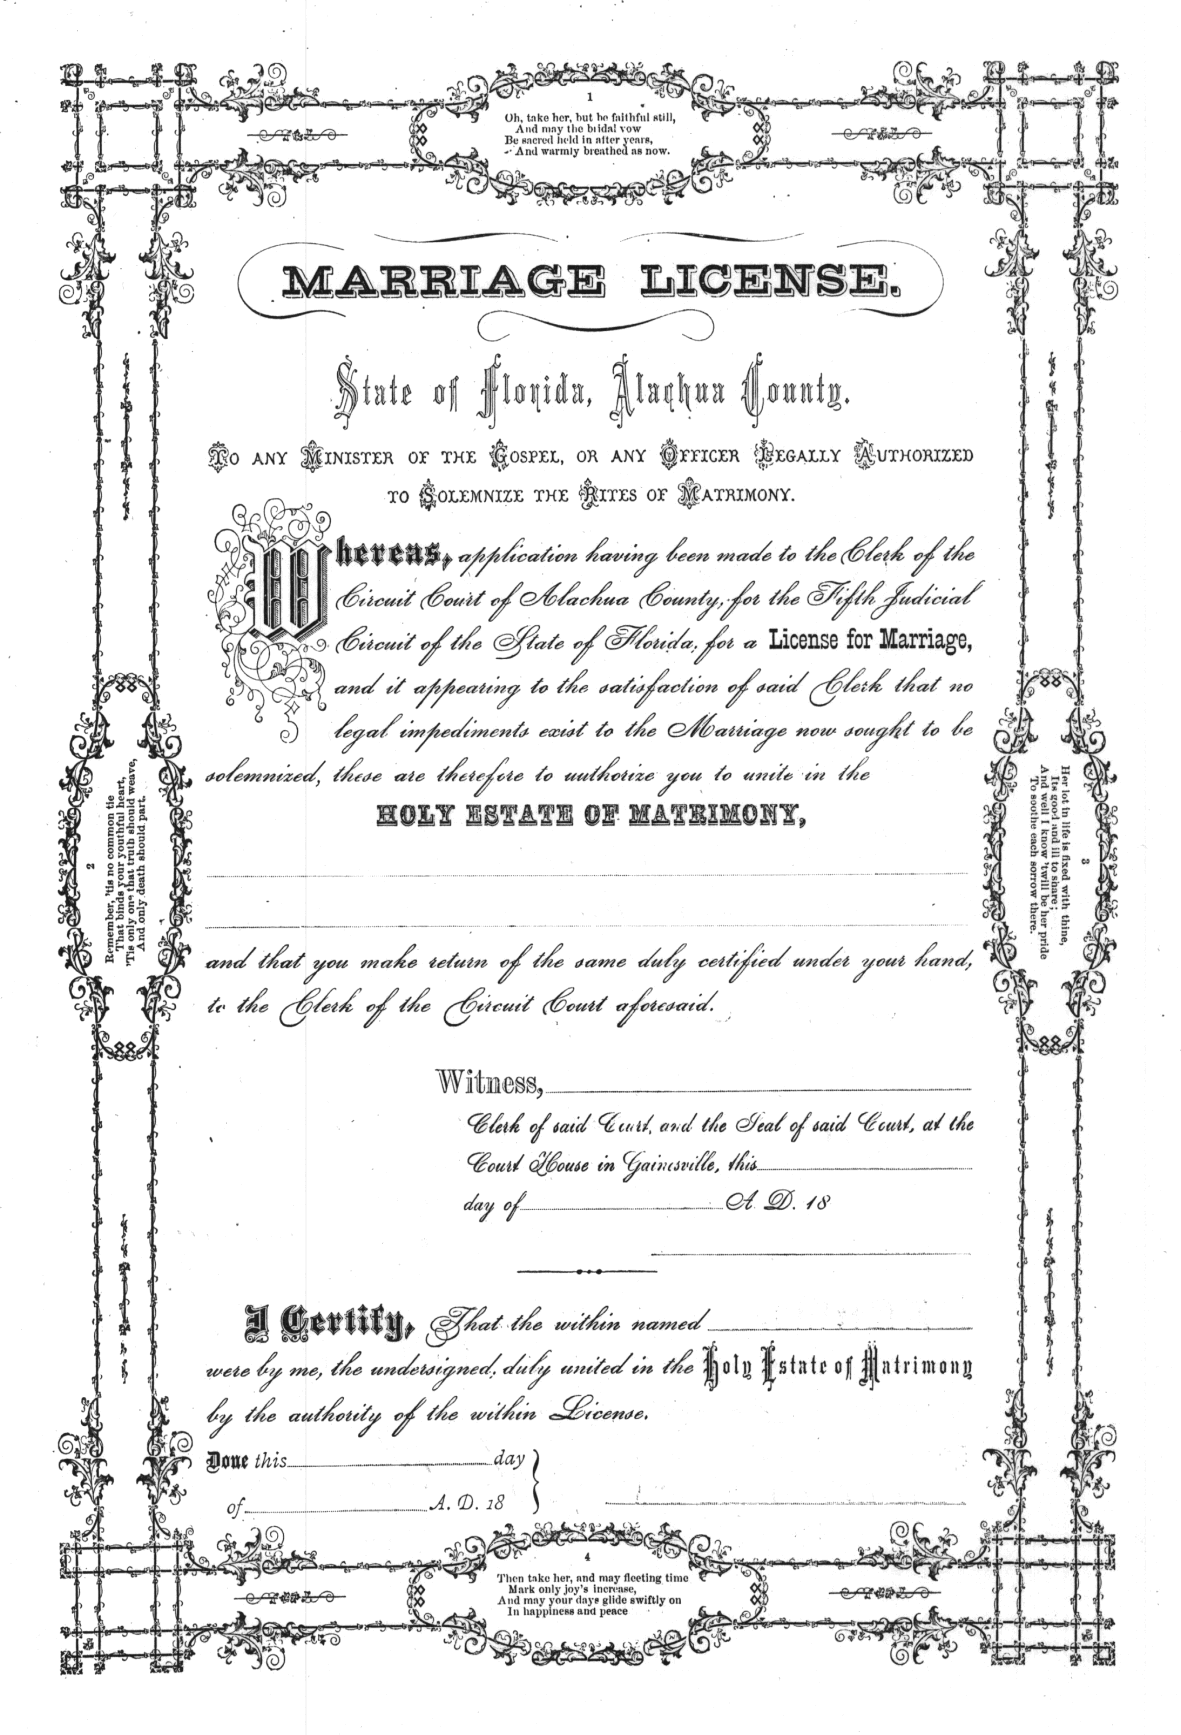 1
Oh, take her, but be faithful still,
And may the bridal vow
Be sacred held in after years,
And warmly breathed as now.
MARRIAGE LICENSE.
State of Florida, Alachua County.
TO ANY MINISTER OF THE GOSPEL, OR ANY OFFICER LEGALLY AUTHORIZED
TO SOLEMNIZE THE RITES OF MATRIMONY.
Whereas, application having been made to the Clerk of the
Circuit Court of Alachua County, for the Fifth Judicial
Circuit of the State of Florida, for a License for Marriage,
and it appearing to the satisfaction of said Clerk that no
legal impediments exist to the Marriage now sought to be
solemnized, these are therefore to authorize you to unite in the
HOLY ESTATE OF MATRIMONY,
and that you make return of the same duly certified under your hand,
to the Clerk of the Circuit Court aforesaid.
Witness,
Clerk of said Court, and the Seal of said Court, at the
Court House in Gainesville, this
day of A. D. 18
I Certify, That the within named
were by me, the undersigned, duly united in the Holy Estate of Matrimony
by the authority of the within License.
Done this day
of A. D. 18
2
Remember, 'tis no common tie
That binds your youthful heart,
'Tis only one that truth should weave,
And only death should part.
3
Her lot in life is fixed with thine,
Its good and ill to share;
And well I know 'twill be her pride
To soothe each sorrow there.
4
Then take her, and may fleeting time
Mark only joy's increase,
And may your days glide swiftly on
In happiness and peace